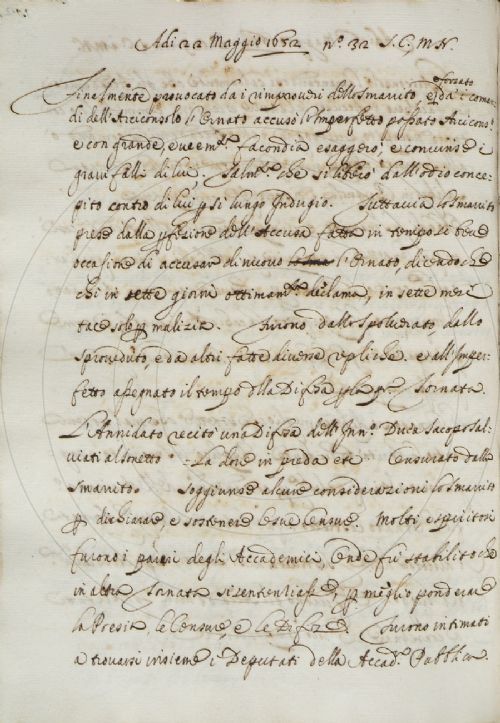 Adi 22 Maggio 1652 nº. 32 S. C, M N.
sforzato
Finalmente provocato da i rimproveri dello Smarrito, e da i coman
di dell'Arciconsolo l'Ornato accusò l'Imperfetto passato Arcicons.º
e con grande, e veem.te facondia esaggerò, e convinse i
gravi falli di lui; talm.te che si liberò dall'odio conce-
pito contro di lui p sì lungo Indugio. Tuttavia lo Smarrito
prese dalla pfezione dell'Accusa fatta in tempo sì breve
occasione di accusar di nuovo l'Ornato, dicendo che
chi in sette giorni ottimam.te declama, in sette mesi
tace solo p malizia. Furono dallo Spolverato, dallo
Sprovveduto, e da altri fatte diverse repliche, e all'Imper-
fetto assegnato il tempo dlla Difesa Tornata.
L'Annidato recitò una Difesa dell' Inn.º Duca Jacopo Sal-
viati al Sonetto La dove in preda etc Censurato dallo
Smarrito. Soggiunse alcune considerazioni lo Smarrito
p dichiarare, e sostenere le sue Censure. Molti, e varii
furono i pareri degli Accademici, onde fu stabilito che
in altra Tornata si sentenziasse, p meglio ponderare
la Poesia, le Censure, e le Difese. Furono intimati
a trovarsi insieme i Deputati della Accad.a Pubblica.